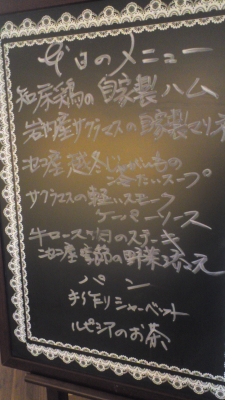 本日のメニュー
知床鶏の自家製ハム
産サクラマスの自家製マリネ
産越冬じゃがいもの
冷たいスープ
サクラマスの軽いスモーク
ケーパーソース
牛ロース肉のステーキ
産季節の野菜添え
パン
手作りシャーベット
ルピシアのお茶